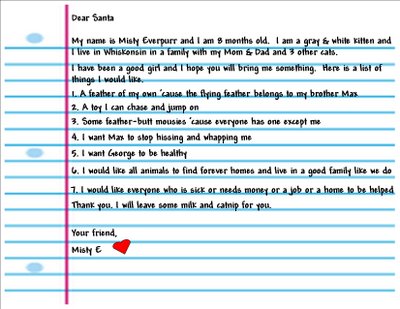 Dear Santa
My name is Misty Everpurr and I am 8 months old. I am a gray & white kitten and
I live in Whiskonsin in a family with my Mom & Dad and 3 other cats.
I have been a good girl and I hope you will bring me something. Here is a list of
things I would like.
1. A feather of my own 'cause the flying feather belongs to my brother Max
2. A toy I can chase and jump on
3. Some feather-butt mousies 'cause everyone has one except me
4. I want Max to stop hissing and whapping me
5. I want George to be healthy
6. I would like all animals to find forever homes and live in a good family like we do
7. I would like everyone who is sick or needs money or a job or a home to be helped
Thank you. I will leave some milk and catnip for you.
Your friend,
Misty E